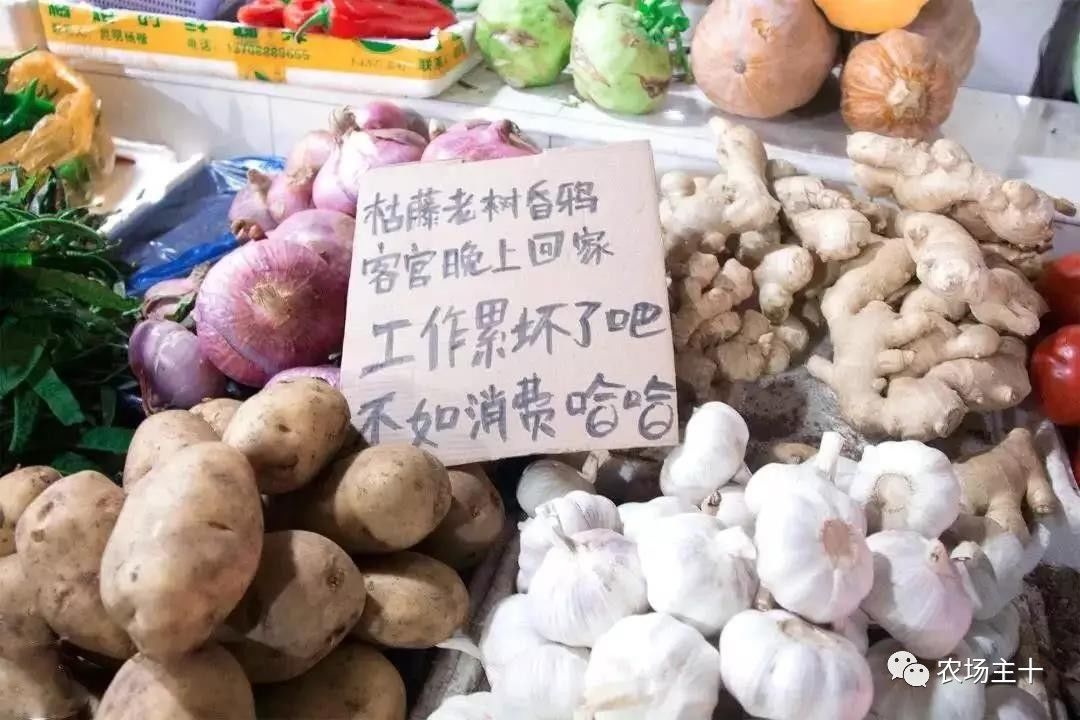 电话:13708889655
联系
枯藤老树昏鸦
客官晚上回家
工作累坏了吧
不如消费哈哈
农场主十